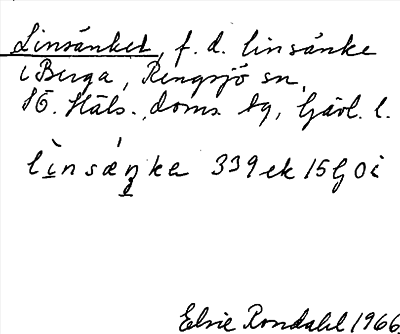 Linsänket, f. d. linsänke
i Berga, Rengsjö sn,
SÖ. Häls., doms sg, Gävl. l.
lìnsǽŋka 339 ek 15G0i
Elsie Rondahl 1966.